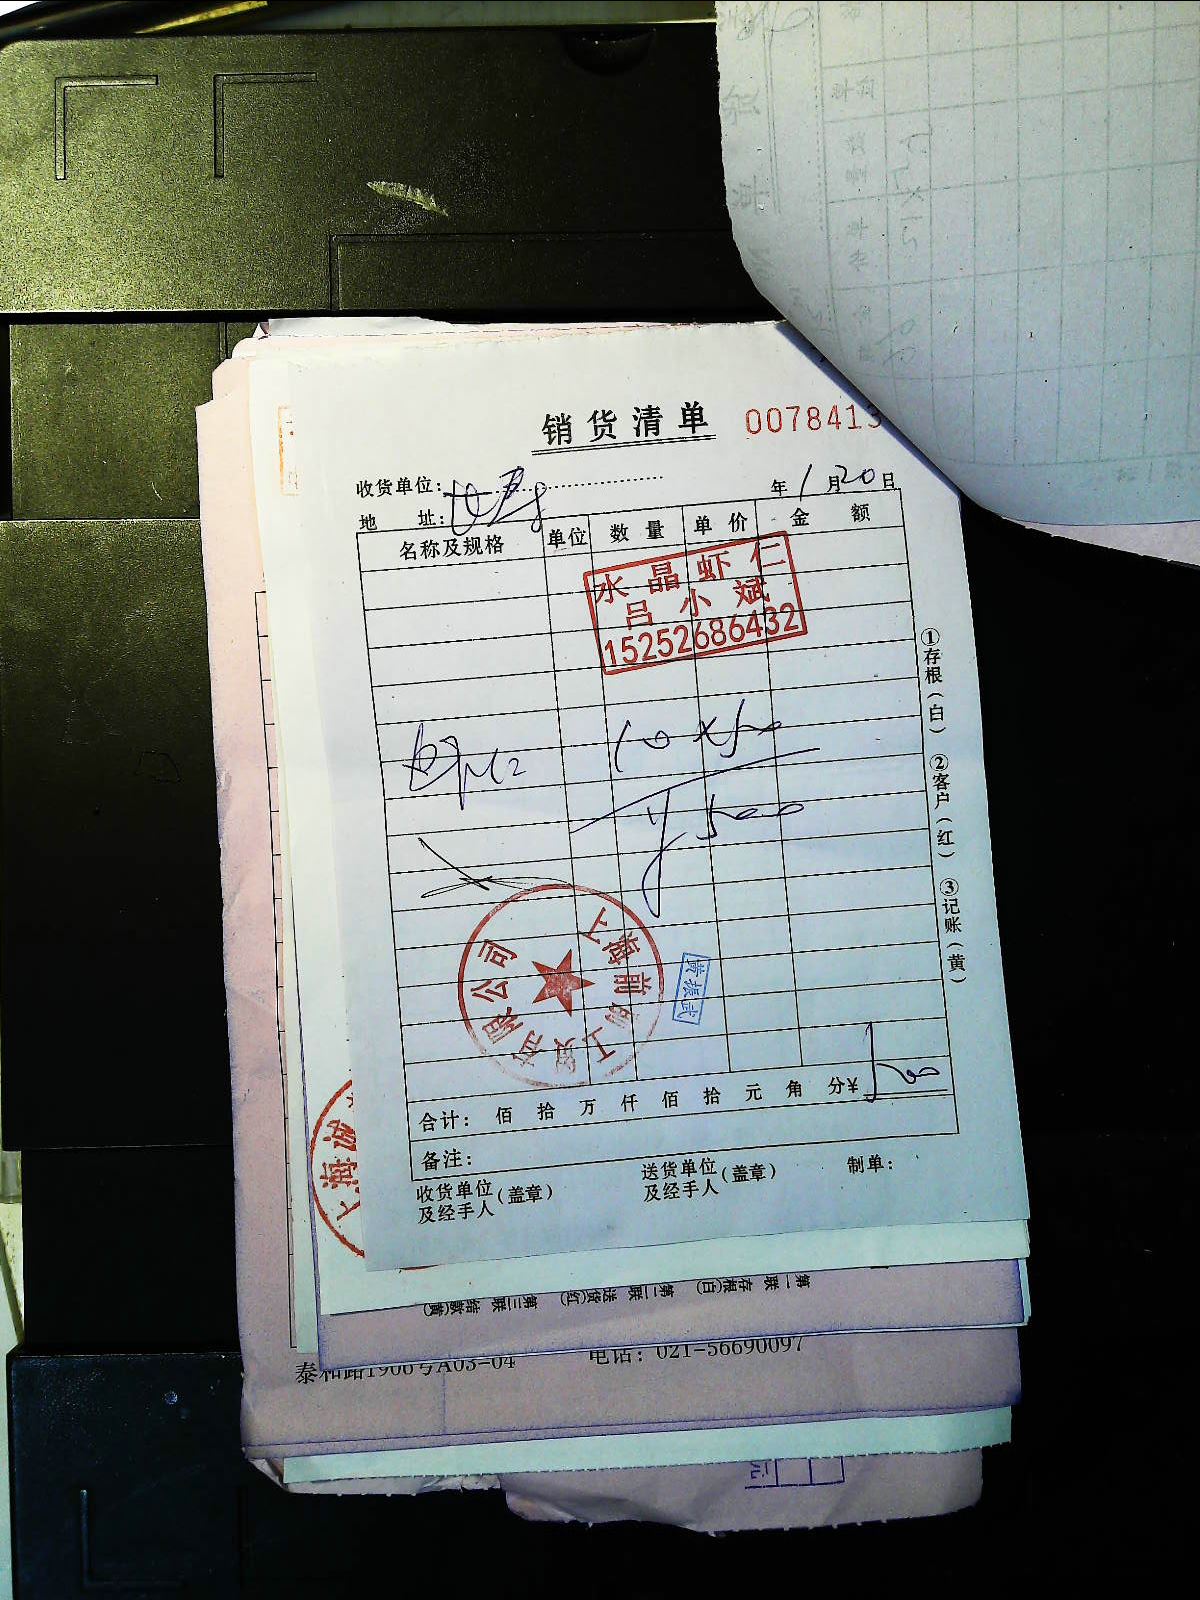 销货清单 0078413
收货单位：
年 1 月 20 日
地 址：
名称及规格 单位 数量 单价 金额
水晶虾仁
吕小斌
15252686432
虾仁 10×50
¥500
上海前前工贸有限公司
黄振武
合计： 佰 拾 万 仟 佰 拾 元 角 分¥
备注：
收货单位及经手人（盖章）
送货单位及经手人（盖章）
制单：
①存根（白） ②客户（红） ③记账（黄）
上海诚
第一联 存根(白) 第二联 送货(红) 第三联 结款(黄)
泰和路1906号A03-04 电话：021-56690097